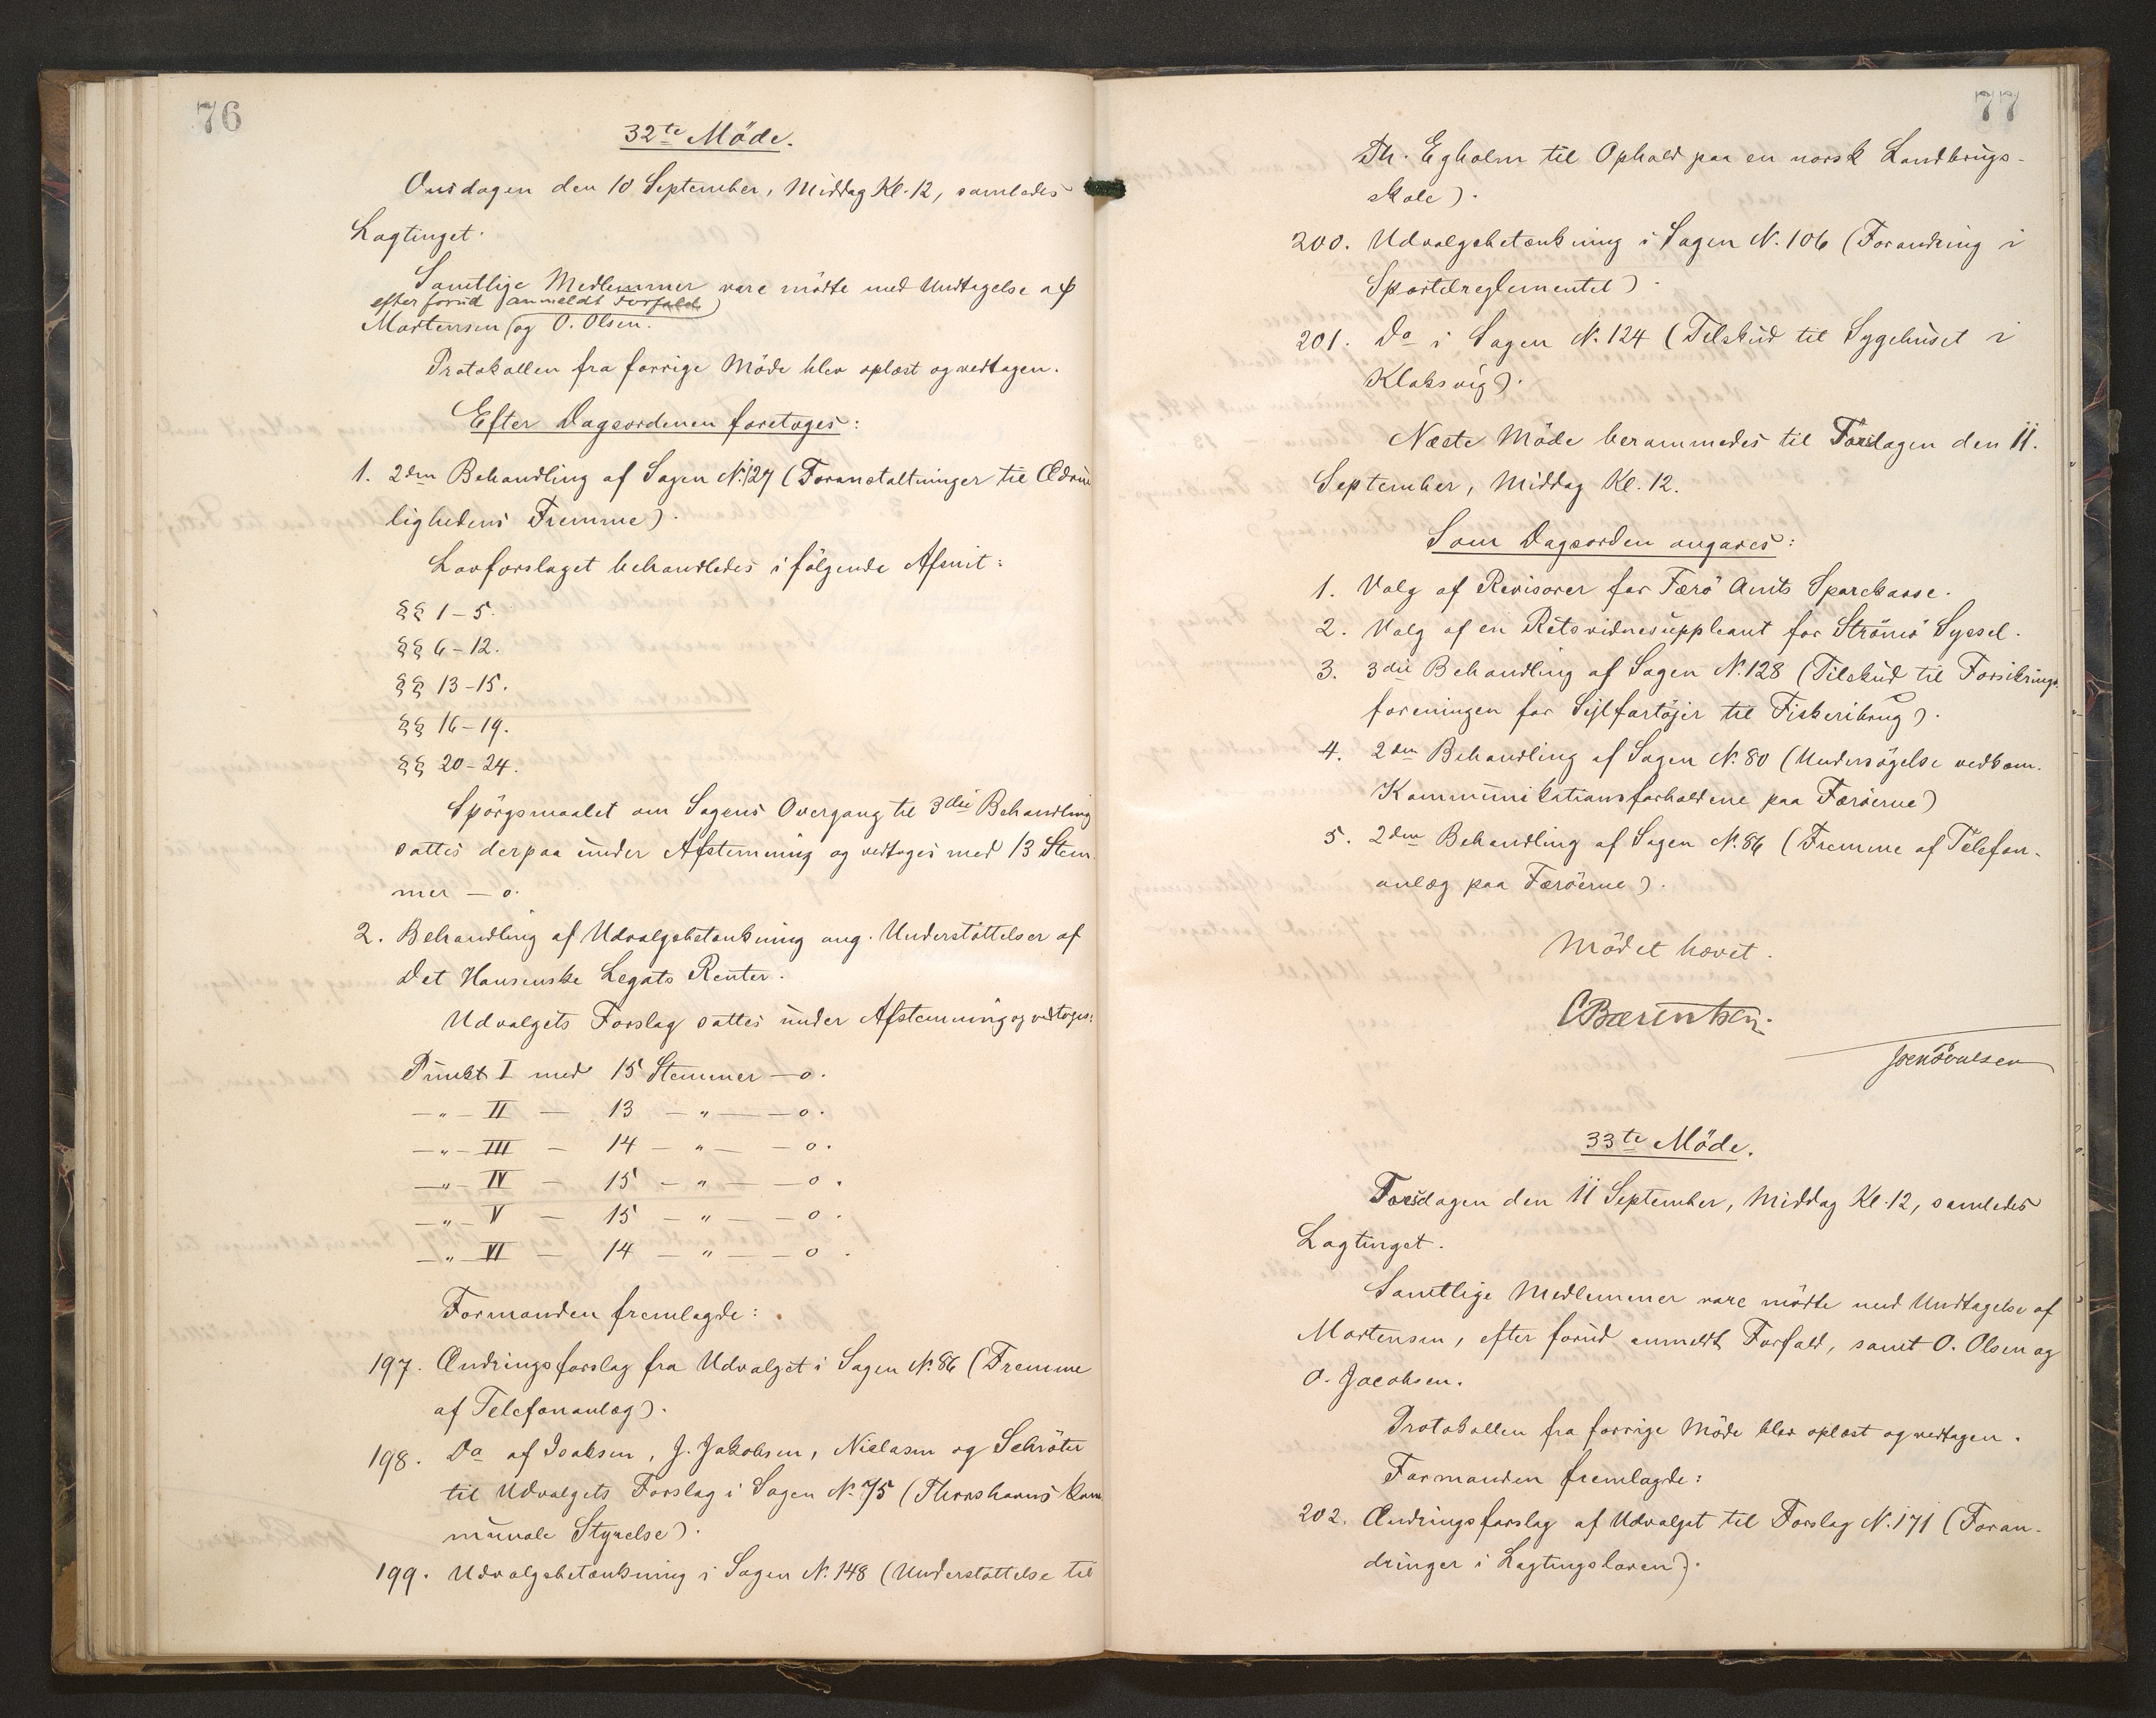 76
32te Möde.
Onsdagen den 10 September, Middag Kl. 12, samledes
Lagtinget.
Samtlige Medlemmer vare mödte med Undtagelse af
efter forud anmeldt Forfald
Mortensen og O. Olsen.
Protokollen fra forrige Möde blev oplæst og vedtagen.
Efter Dagsordenen foretoges:
1. 2den Behandling af Sagen N. 127 (Foranstaltninger til Ædrue
lighedens Fremme).
Lovforslaget behandledes i fölgende Afsnit:
§§ 1-5.
§§ 6-12.
§§ 13-15.
§§ 16-19.
§§ 20-24.
Spörgsmaalet om Sagens Overgang til 3die Behandling
sattes derpaa under Afstemning og vedtoges med 13 Stem-
mer - 0.
2. Behandling af Udvalgsbetænkning ang. Understöttelser af
Det Hansenske Legats Renter.
Udvalgets Forslag sattes under Afstemning og vedtoges:
Punkt I med 15 Stemmer - 0.
-"- II - 13 -"- - 0.
-"- III - 14 -"- - 0.
-"- IV - 15 -"- - 0.
-"- V - 15 -"- - 0.
-"- VI - 14 -"- - 0.
Formanden fremlagde:
197. Ændringsforslag fra Udvalget i Sagen N. 86 (Fremme
af Telefonanlæg).
198. Do af Isaksen, J. Jakobsen, Nielasen og Schröter
til Udvalgets Forslag i Sagen N. 75 (Thorshavns kom
munale Styrelse).
199. Udvalgsbetænkning i Sagen N. 148 (Understöttelse til
77
Th. Egholm til Ophold paa en norsk Landbrugs-
skole).
200. Udvalgsbetænkning i Sagen N. 106 (Forandring i
Sportelreglementet).
201. Do i Sagen N. 124 (Tilskud til Sygehuset i
Klaksvig).
Næste Möde berammedes til Torsdagen den 11.
September, Middag Kl. 12.
Som Dagsorden angaves:
1. Valg af Revisorer for Færö Amts Sparekasse.
2. Valg af en Retsvidnesuppleant for Strömö Syssel.
3. 3die Behandling af Sagen N. 128 (Tilskud til Forsikrings
foreningen for Sejlfartöjer til Fiskeribrug).
4. 2den Behandling af Sagen N. 80 (Undersögelse vedkom.
Kommunikationsforholdene paa Færöerne)
5. 2den Behandling af Sagen N. 86 (Fremme af Telefon-
anlæg paa Færöerne).
Mödet hævet.
CBærentsen.
33te Möde.
Torsdagen den 11 September, Middag Kl. 12, samledes
Lagtinget.
Samtlige Medlemmer vare mödte med Undtagelse af
Mortensen, efter forud anmeldt Forfald, samt O. Olsen og
O. Jacobsen.
Protokollen fra forrige Möde blev oplæst og vedtagen.
Formanden fremlagde:
202. Ændringsforslag af Udvalget til Forslag N. 171 (Foran-
dringer i Lagtingsloven).